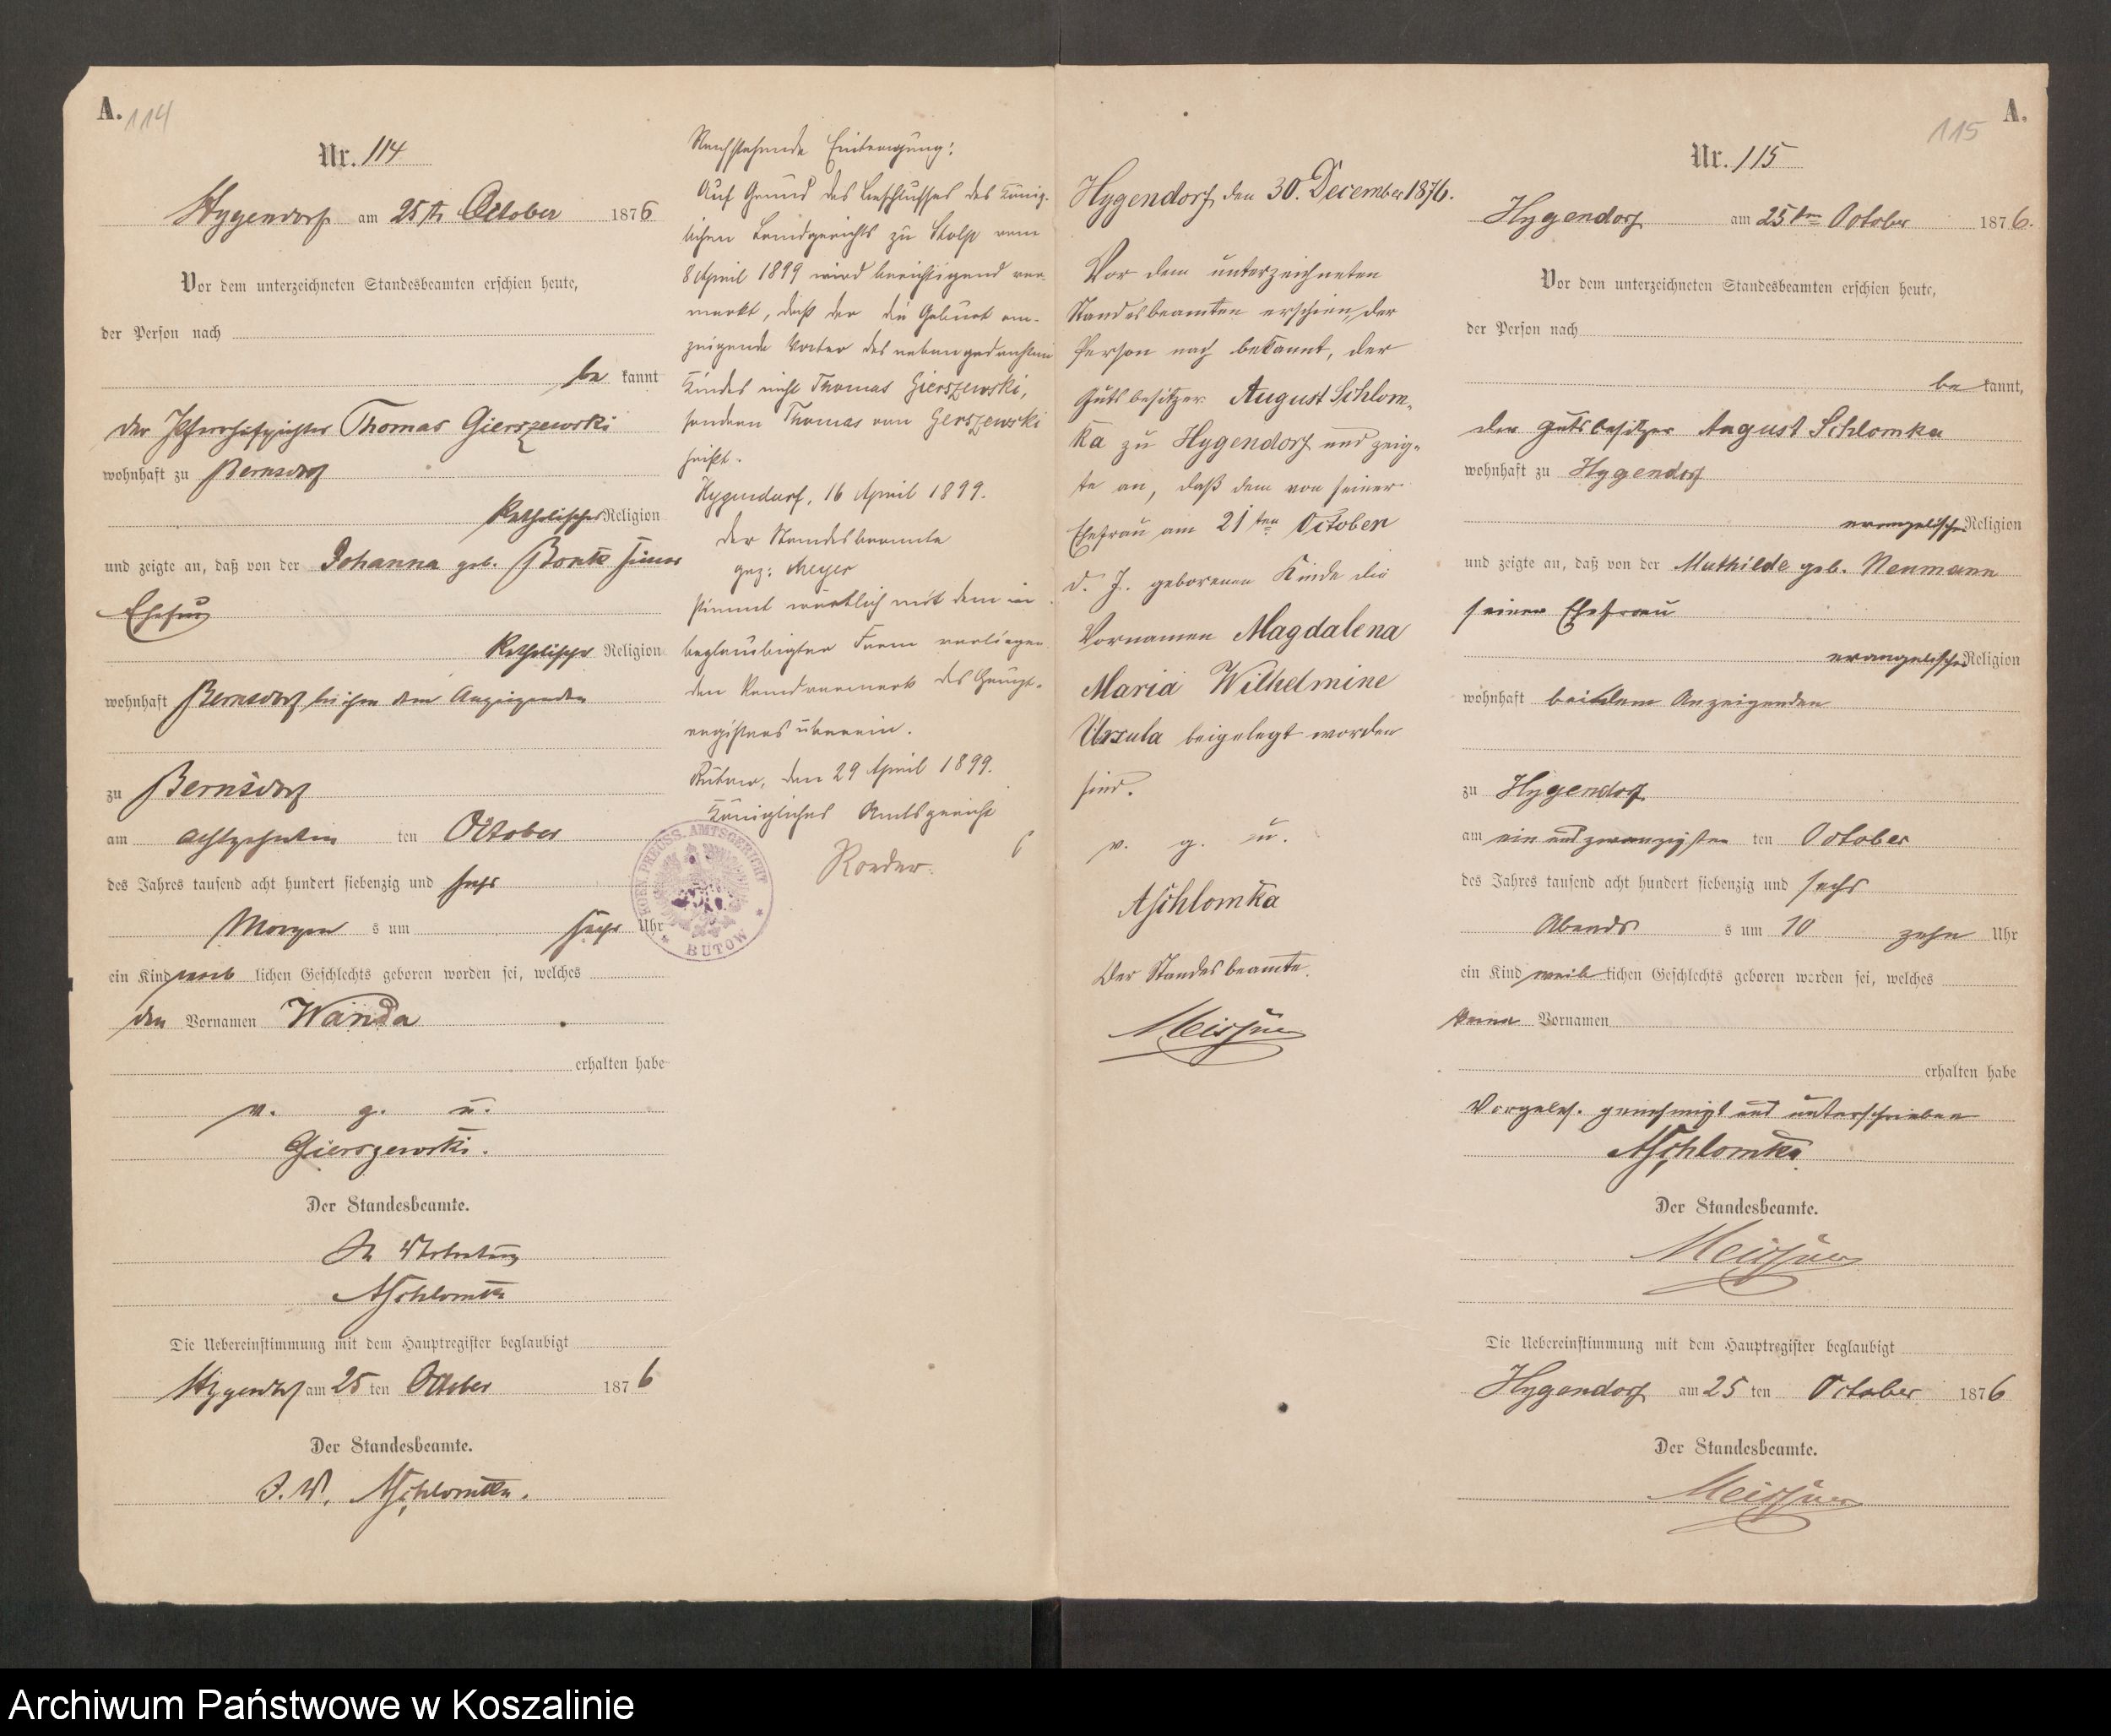 A.
114
Nr. 114
Hygendorf am 25ten October 1876
Vor dem unterzeichneten Standesbeamten erschien heute,
der Person nach
be kannt
der Thomas Gierszewski
wohnhaft zu Bernsdorf
katholischer Religion
und zeigte an, daß von der Johanna geb. seiner
Ehefrau
katholischer Religion
wohnhaft Bernsdorf bei ihm dem Anzeigenden
zu Bernsdorf
am achtzehnten ten October
des Jahres tausend acht hundert siebenzig und sechs
Morgen s um sechs Uhr
ein Kind weib lichen Geschlechts geboren worden sei, welches
den Vornamen Wanda
erhalten habe
v. g. u.
Gierszewski.
Der Standesbeamte.
In Vertretung
ASchlomka
Die Uebereinstimmung mit dem Hauptregister beglaubigt
Hygendorf am 25 ten October 1876
Der Standesbeamte.
I. V. ASchlomka.
Nachstehende Eintragung:
Auf Grund des Beschlusses des König-
lichen Landgerichts zu Stolp vom
8 April 1899 wird berichtigend ver-
merkt, daß der die Geburt an-
zeigende Vater des nebengedachten
Kindes nicht Thomas Gierszewski,
sondern Thomas von Gerszewski
heißt.
Hygendorf, 16 April 1899.
Der Standesbeamte
gez: Meyer
stimmt wörtlich mit dem in
beglaubigter Form vorliegen
den Randvermerk des Haupt-
registers überein.
Bütow, den 29 April 1899.
Königliches Amtsgericht
Roeder.
KOEN. PREUSS. AMTSGERICHT
* BÜTOW *
Hygendorf, den 30. December 1876.
Vor dem unterzeichneten
Standesbeamten erschien, der
Person nach bekannt, der
Gutsbesitzer August Schlom-
ka zu Hygendorf und zeig-
te an, daß dem von seiner
Ehefrau am 21ten October
d. J. geborenen Kinde die
Vornamen Magdalena
Maria Wilhelmine
Ursula beigelegt worden
sind.
v. g. u.
ASchlomka
Der Standesbeamte.
Meissner
A.
115
Nr. 115
Hygendorf am 25ten October 1876.
Vor dem unterzeichneten Standesbeamten erschien heute,
der Person nach
be kannt,
der Gutsbesitzer August Schlomka
wohnhaft zu Hygendorf
evangelischer Religion
und zeigte an, daß von der Mathilde geb. Neumann
seiner Ehefrau
evangelischer Religion
wohnhaft bei dem Anzeigenden
zu Hygendorf
am ein und zwanzigsten ten October
des Jahres tausend acht hundert siebenzig und sechs
Abends s um 10 zehn Uhr
ein Kind weib lichen Geschlechts geboren worden sei, welches
keine Vornamen
erhalten habe
Vorgeles. genehmigt und unterschrieben
ASchlomka
Der Standesbeamte.
Meissner
Die Uebereinstimmung mit dem Hauptregister beglaubigt
Hygendorf am 25 ten October 1876
Der Standesbeamte.
Meissner
Archiwum Państwowe w Koszalinie